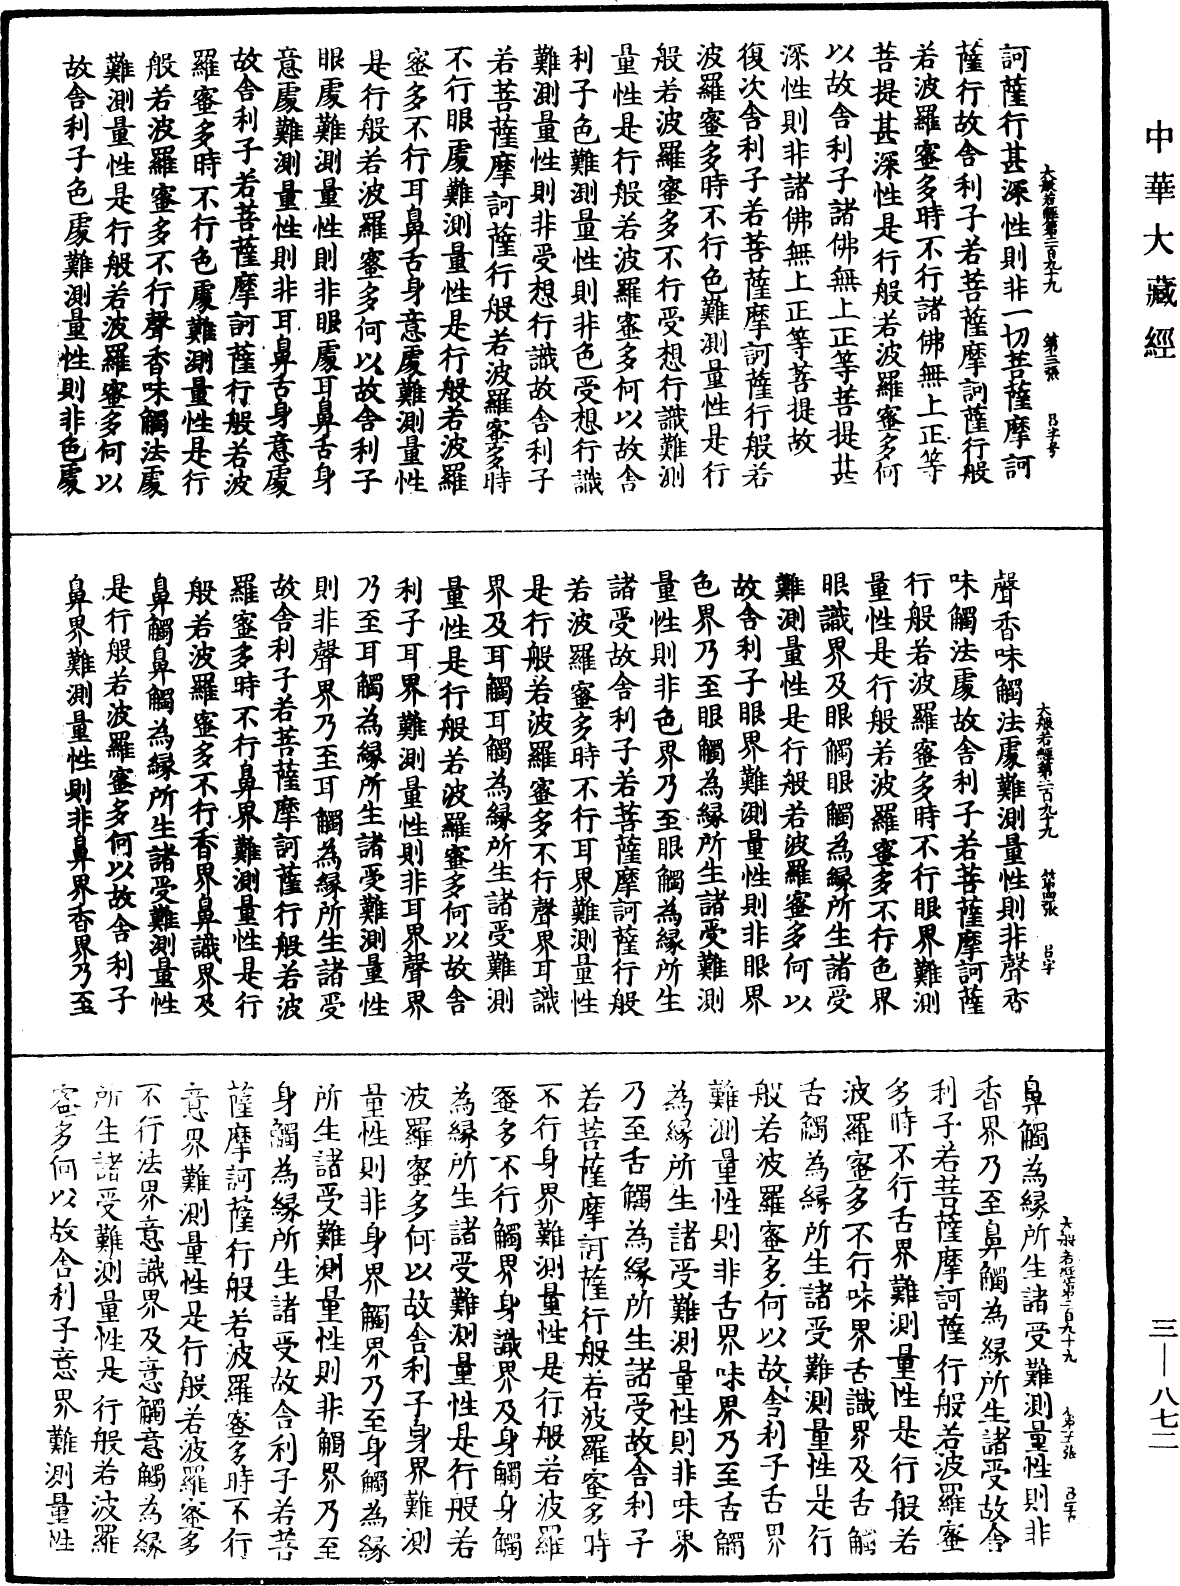 中華大藏經
訶薩行甚深性則非一切菩薩摩訶
薩行故舍利子若菩薩摩訶薩行般
若波羅蜜多時不行諸佛無上正等
菩提甚深性是行般若波羅蜜多何
以故舍利子諸佛無上正等菩提甚
深性則非諸佛無上正等菩提故
復次舍利子若菩薩摩訶薩行般若
波羅蜜多時不行色難測量性是行
般若波羅蜜多不行受想行識難測
量性是行般若波羅蜜多何以故舍
利子色難測量性則非色受想行識
難測量性則非受想行識故舍利子
若菩薩摩訶薩行般若波羅蜜多時
不行眼處難測量性是行般若波羅
蜜多不行耳鼻舌身意處難測量性
是行般若波羅蜜多何以故舍利子
眼處難測量性則非眼處耳鼻舌身
意處難測量性則非耳鼻舌身意處
故舍利子若菩薩摩訶薩行般若波
羅蜜多時不行色處難測量性是行
般若波羅蜜多不行聲香味觸法處
難測量性是行般若波羅蜜多何以
故舍利子色處難測量性則非色處
大般若經第二百九十九 第三張 呂字号
聲香味觸法處難測量性則非聲香
味觸法處故舍利子若菩薩摩訶薩
行般若波羅蜜多時不行眼界難測
量性是行般若波羅蜜多不行色界
眼識界及眼觸眼觸為緣所生諸受
難測量性是行般若波羅蜜多何以
故舍利子眼界難測量性則非眼界
色界乃至眼觸為緣所生諸受難測
量性則非色界乃至眼觸為緣所生
諸受故舍利子若菩薩摩訶薩行般
若波羅蜜多時不行耳界難測量性
是行般若波羅蜜多不行聲界耳識
界及耳觸耳觸為緣所生諸受難測
量性是行般若波羅蜜多何以故舍
利子耳界難測量性則非耳界聲界
乃至耳觸為緣所生諸受難測量性
則非聲界乃至耳觸為緣所生諸受
故舍利子若菩薩摩訶薩行般若波
羅蜜多時不行鼻界難測量性是行
般若波羅蜜多不行香界鼻識界及
鼻觸鼻觸為緣所生諸受難測量性
是行般若波羅蜜多何以故舍利子
鼻界難測量性則非鼻界香界乃至
大般若經第二百九十九 第四張 呂字
鼻觸為緣所生諸受難測量性則非
香界乃至鼻觸為緣所生諸受故舍
利子若菩薩摩訶薩行般若波羅蜜
多時不行舌界難測量性是行般若
波羅蜜多不行味界舌識界及舌觸
舌觸為緣所生諸受難測量性是行
般若波羅蜜多何以故舍利子舌界
難測量性則非舌界味界乃至舌觸
為緣所生諸受難測量性則非味界
乃至舌觸為緣所生諸受故舍利子
若菩薩摩訶薩行般若波羅蜜多時
不行身界難測量性是行般若波羅
蜜多不行觸界身識界及身觸身觸
為緣所生諸受難測量性是行般若
波羅蜜多何以故舍利子身界難測
量性則非身界觸界乃至身觸為緣
所生諸受難測量性則非觸界乃至
身觸為緣所生諸受故舍利子若菩
薩摩訶薩行般若波羅蜜多時不行
意界難測量性是行般若波羅蜜多
不行法界意識界及意觸意觸為緣
所生諸受難測量性是行般若波羅
蜜多何以故舍利子意界難測量性
大般若經第二百九十九 第五張 呂字
三—八七二